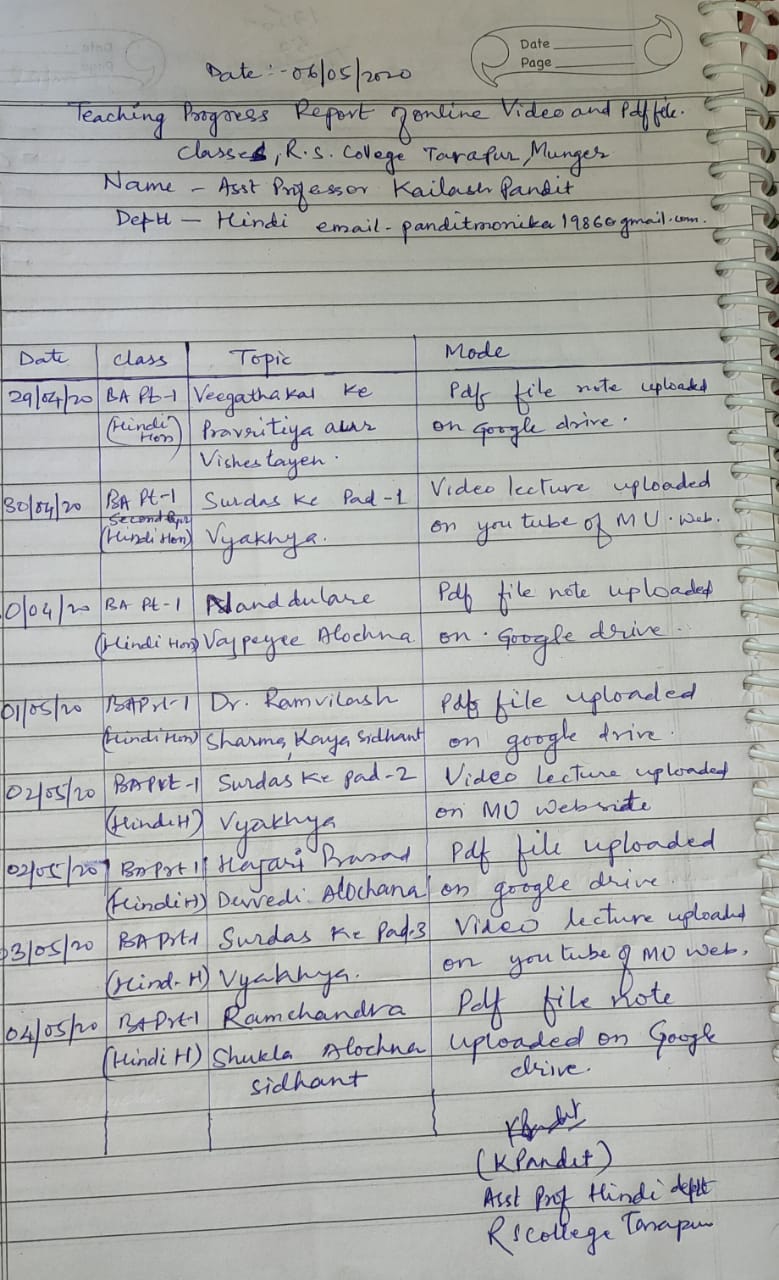 Date ________
Page ________
Date :- 06/05/2020
Teaching Progress Report of online Video and Pdf file.
Classes, R.S. College Tarapur, Munger
Name - Asst Professor Kailash Pandit
Deptt - Hindi email - panditmonika1986@gmail.com.
Date Class Topic Mode
29/04/20 BA Pt-1 Veegathakal Ke Pdf file note uploaded
(Hindi Hon) Pravritiya aur on Google drive.
Vishestayen.
30/04/20 BA Pt-1 Surdas Ke Pad-1 Video lecture uploaded
Second
(Hindi Hon) Vyakhya. on you tube of MU. web.
0/04/20 BA Pt-1 Nanddulare Pdf file note uploaded
(Hindi Hon) Vajpeyee Alochna on. Google drive.
01/05/20 BA Prt-1 Dr. Ramvilash Pdf file uploaded
(Hindi Hon) Sharma, Kavya Sidhant on google drive.
02/05/20 BA Prt-1 Surdas Ke pad-2 Video lecture uploaded
(Hindi H) Vyakhya on MU website
02/05/20 BA Prt 1 Hajari Prasad Pdf file uploaded
(Hindi H) Devvedi Alochana on google drive.
03/05/20 BA Prt-1 Surdas Ke Pad-3 Video lecture uploaded
(Hind. H) Vyakhya. on you tube of MU web.
04/05/20 BA Prt-1 Ramchandra Pdf file note
(Hindi H) Shukla Alochna uploaded on Google
sidhant drive.
(K Pandit)
Asst Prof Hindi deptt
R S College Tarapur